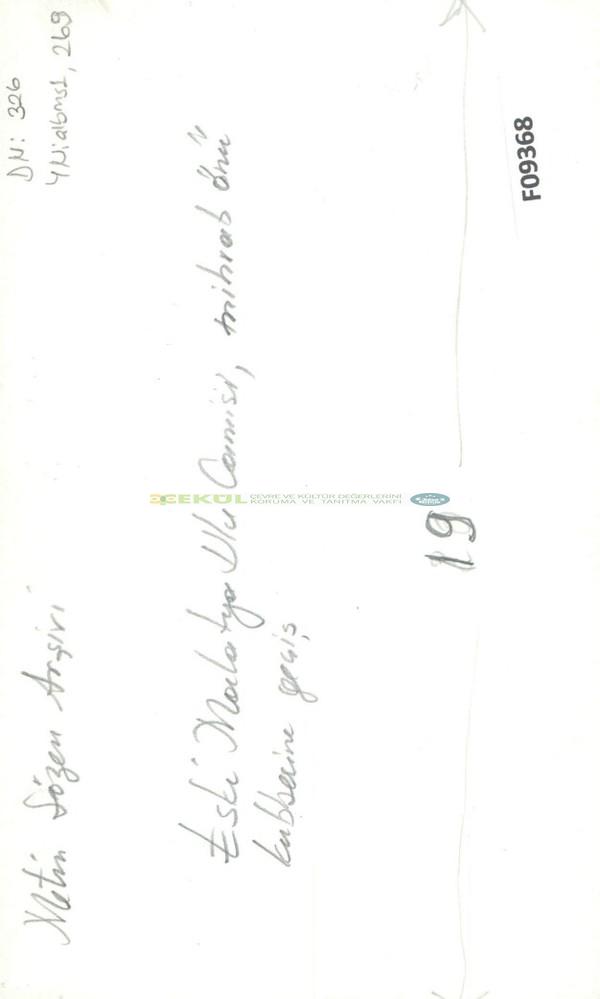 Metin Sözen Arşivi
DN: 326
YN:albms1, 269
Eski Malatya Ulu Camisi, mihrab önü
kubbesine geçiş
ÇEKÜL ÇEVRE VE KÜLTÜR DEĞERLERİNİ
KORUMA VE TANITMA VAKFI
19
F09368